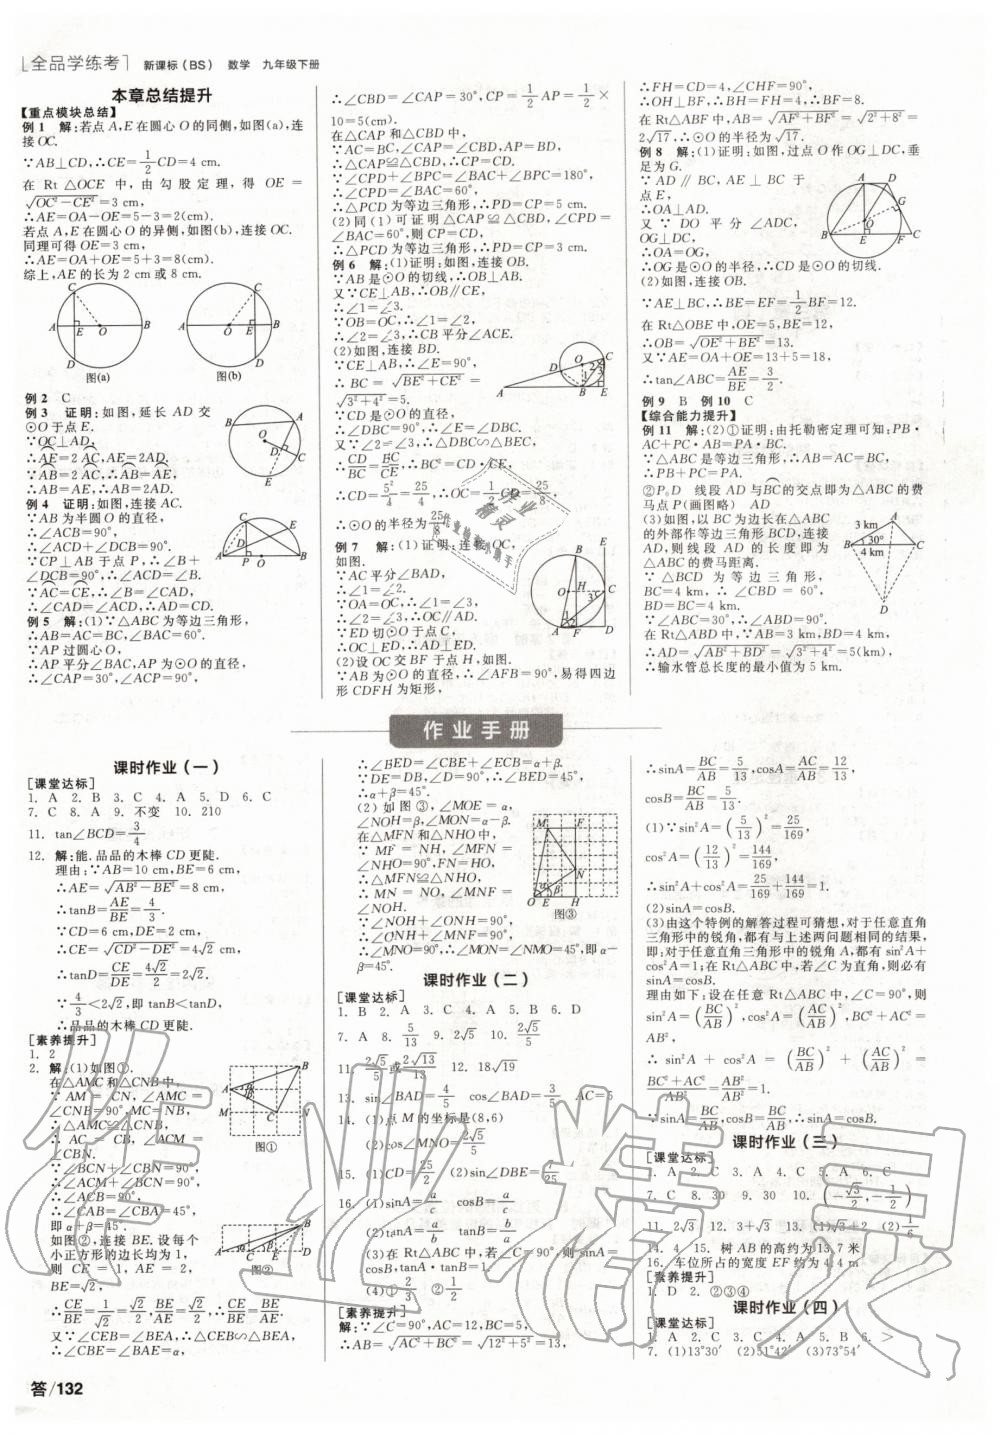 全品学练考 新课标(BS) 数学 九年级下册
本章总结提升
【重点模块总结】
例1 解:若点A,E在圆心O的同侧,如图(a),连
接OC.
∵AB⊥CD,∴CE=1/2CD=4 cm.
在 Rt△OCE 中,由勾股定理,得 OE=
√(OC²-CE²)=3 cm,
∴AE=OA-OE=5-3=2(cm).
若点A,E在圆心O的异侧,如图(b),连接OC.
同理可得OE=3 cm,
∴AE=OA+OE=5+3=8(cm).
综上,AE的长为2 cm或8 cm.
图(a) 图(b)
例2 C
例3 证明:如图,延长AD交
⊙O于点E.
∵OC⊥AD,
∴AE=2AC,AE=2AD.
∵AB=2AC,∴AB=AE,
∴AB=AE,∴AB=2AD.
例4 证明:如图,连接AC.
∵AB为半圆O的直径,
∴∠ACB=90°,
∴∠ACD+∠DCB=90°.
∵CP⊥AB于点P,∴∠B+
∠DCB=90°,∴∠ACD=∠B.
∵AC=CE,∴∠B=∠CAD,
∴∠CAD=∠ACD,∴AD=CD.
例5 解:(1)∵△ABC为等边三角形,
∴AB=AC=BC,∠BAC=60°.
∵AP过圆心O,
∴AP平分∠BAC,AP为⊙O的直径,
∴∠CAP=30°,∠ACP=90°,
∴∠CBD=∠CAP=30°,CP=1/2AP=1/2×
10=5(cm).
在△CAP和△CBD中,
∵AC=BC,∠CAP=∠CBD,AP=BD,
∴△CAP≌△CBD,∴CP=CD.
∵∠CPD+∠BPC=∠BAC+∠BPC=180°,
∴∠CPD=∠BAC=60°,
∴△PCD为等边三角形,∴PD=CP=5 cm.
(2)同(1)可证明△CAP≌△CBD,∠CPD=
∠BAC=60°,则CP=CD,
∴△PCD为等边三角形,∴PD=CP=3 cm.
例6 解:(1)证明:如图,连接OB.
∵AB是⊙O的切线,∴OB⊥AB.
又∵CE⊥AB,∴OB∥CE,
∴∠1=∠3.
∵OB=OC,∴∠1=∠2,
∴∠2=∠3,∴CB平分∠ACE.
(2)如图,连接BD.
∵CE⊥AB,∴∠E=90°,
∴BC=√(BE²+CE²)=
√(3²+4²)=5.
∵CD是⊙O的直径,
∴∠DBC=90°,∴∠E=∠DBC.
又∵∠2=∠3,∴△DBC∽△BEC,
∴CD/BC=BC/CE,∴BC²=CD·CE,
∴CD=5²/4=25/4,∴OC=1/2CD=25/8,
∴⊙O的半径为25/8.
例7 解:(1)证明:连接OC,
如图.
∵AC平分∠BAD,
∴∠1=∠2.
∵OA=OC,∴∠1=∠3,
∴∠2=∠3,∴OC∥AD.
∵ED切⊙O于点C,
∴OC⊥ED,∴AD⊥ED.
(2)设OC交BF于点H,如图.
∵AB为⊙O的直径,∴∠AFB=90°,易得四边
形CDFH为矩形,
∴FH=CD=4,∠CHF=90°.
∴OH⊥BF,∴BH=FH=4,∴BF=8.
在Rt△ABF中,AB=√(AF²+BF²)=√(2²+8²)=
2√17,∴⊙O的半径为√17.
例8 解:(1)证明:如图,过点O作OG⊥DC,垂
足为G.
∵AD∥BC,AE⊥BC于
点E,
∴OA⊥AD.
又∵DO平分∠ADC,
OG⊥DC,
∴OA=OG.
∴OG是⊙O的半径,∴CD是⊙O的切线.
(2)如图,连接OB.
∵AE⊥BC,∴BE=EF=1/2BF=12.
在Rt△OBE中,OE=5,BE=12,
∴OB=√(OE²+BE²)=13.
又∵AE=OA+OE=13+5=18,
∴tan∠ABC=AE/BE=3/2.
例9 B 例10 C
【综合能力提升】
例11 解:(2)①证明:由托勒密定理可知:PB·
AC+PC·AB=PA·BC.
∵△ABC是等边三角形,∴AB=AC=BC,
∴PB+PC=PA.
②P₀D 线段AD与BC的交点即为△ABC的费
马点P(画图略) AD
(3)如图,以BC为边长在△ABC
的外部作等边三角形BCD,连接
AD,则线段AD的长度即为
△ABC的费马距离.
∵△BCD为等边三角形,
BC=4 km,∴∠CBD=60°,
BD=BC=4 km.
∵∠ABC=30°,∴∠ABD=90°.
在Rt△ABD中,∵AB=3 km,BD=4 km,
∴AD=√(AB²+BD²)=√(3²+4²)=5(km),
∴输水管总长度的最小值为5 km.
作业手册
课时作业(一)
[课堂达标]
1. A 2. B 3. C 4. A 5. D 6. C
7. C 8. A 9. 不变 10. 210
11. tan∠BCD=3/4
12. 解:能.品品的木棒CD更陡.
理由:∵AB=10 cm,BE=6 cm,
∴AE=√(AB²-BE²)=8 cm,
∴tanB=AE/BE=4/3.
∵CD=6 cm,DE=2 cm,
∴CE=√(CD²-DE²)=4√2 cm,
∴tanD=CE/DE=4√2/2=2√2.
∵4/3<2√2,即tanB<tanD,
∴品品的木棒CD更陡.
[素养提升]
1. 2
2. 解:(1)如图①.
在△AMC和△CNB中,
∵AM=CN,∠AMC=
∠CNB=90°,MC=NB,
∴△AMC≌△CNB,
∴AC=CB,∠ACM=
∠CBN.
∵∠BCN+∠CBN=90°,
∴∠BCN+∠ACM=90°,
∴∠ACB=90°.
∴∠CAB=∠CBA=45°,
即α+β=45°.
图①
如图②,连接BE.设每个
小正方形的边长均为1,
则CE=1,AE=2,
BE=√2.
图②
∴CE/BE=1/√2=√2/2,BE/AE=√2/2,∴CE/BE=BE/AE.
又∵∠CEB=∠BEA,∴△CEB∽△BEA,
∴∠CBE=∠BAE=α,
∴∠BED=∠CBE+∠ECB=α+β.
∵DE=DB,∠D=90°,∴∠BED=45°,
∴α+β=45°.
(2)如图③,∠MOE=α,
∠NOH=β,∠MON=α-β.
在△MFN和△NHO中,
∵MF=NH,∠MFN=
∠NHO=90°,FN=HO,
∴△MFN≌△NHO,
∴MN=NO,∠MNF=
∠NOH.
图③
∵∠NOH+∠ONH=90°,
∴∠ONH+∠MNF=90°,
∴∠MNO=90°,∴∠MON=∠NMO=45°,即α-
β=45°.
课时作业(二)
[课堂达标]
1. B 2. A 3. C 4. A 5. B 6. D
7. A 8. 5/13 9. 2√5 10. 2√5/5
11. 2√5/5或2√13/13 12. 18√19
13. sin∠BAD=4/5 cos∠BAD=3/5 AC=5
14. (1)点M的坐标是(8,6)
(2)cos∠MNO=2√5/5
15. (1)CD=25/2 (2)sin∠DBE=7/25
16. (1)sinA=a/c cosB=a/c
(2)tanA=a/b tanB=b/a
(3)在Rt△ABC中,若∠C=90°,则sinA=
cosB,tanA·tanB=1.
(4)①2/3 ②1/2
[素养提升]
解:∵∠C=90°,AC=12,BC=5,
∴AB=√(AC²+BC²)=√(12²+5²)=13,
∴sinA=BC/AB=5/13,cosA=AC/AB=12/13,
cosB=BC/AB=5/13.
(1)∵sin²A=(5/13)²=25/169,
cos²A=(12/13)²=144/169,
∴sin²A+cos²A=25/169+144/169=1.
(2)sinA=cosB.
(3)由这个特例的解答过程可猜想,对于任意直角
三角形中的锐角,都有与上述两问题相同的结果,
即:对于任意直角三角形中的锐角A,都有sin²A+
cos²A=1;在Rt△ABC中,若∠C为直角,则必有
sinA=cosB.
理由如下:设在任意Rt△ABC中,∠C=90°,则
sin²A=(BC/AB)²,cos²A=(AC/AB)²,BC²+AC²=
AB²,
∴sin²A+cos²A=(BC/AB)²+(AC/AB)²=
(BC²+AC²)/AB²=AB²/AB²=1.
∵sinA=BC/AB,cosB=BC/AB,∴sinA=cosB.
课时作业(三)
[课堂达标]
1. A 2. C 3. A 4. C 5. A 6. C
7. C 8. 30 9. 30 10. (-√3/2,-1/2)
11. 2√3 12. 3+√3 13. (1)√3+2 (2)1/6
14. 4 15. 树AB的高约为13.7米
16. 车位所占的宽度EF约为4.4 m
[素养提升]
1. D 2. ②③④
课时作业(四)
[课堂达标]
1. A 2. C 3. C 4. A 5. A 6. >
7. (1)13°30′ (2)51°42′ (3)73°54′
答/132
作业精灵